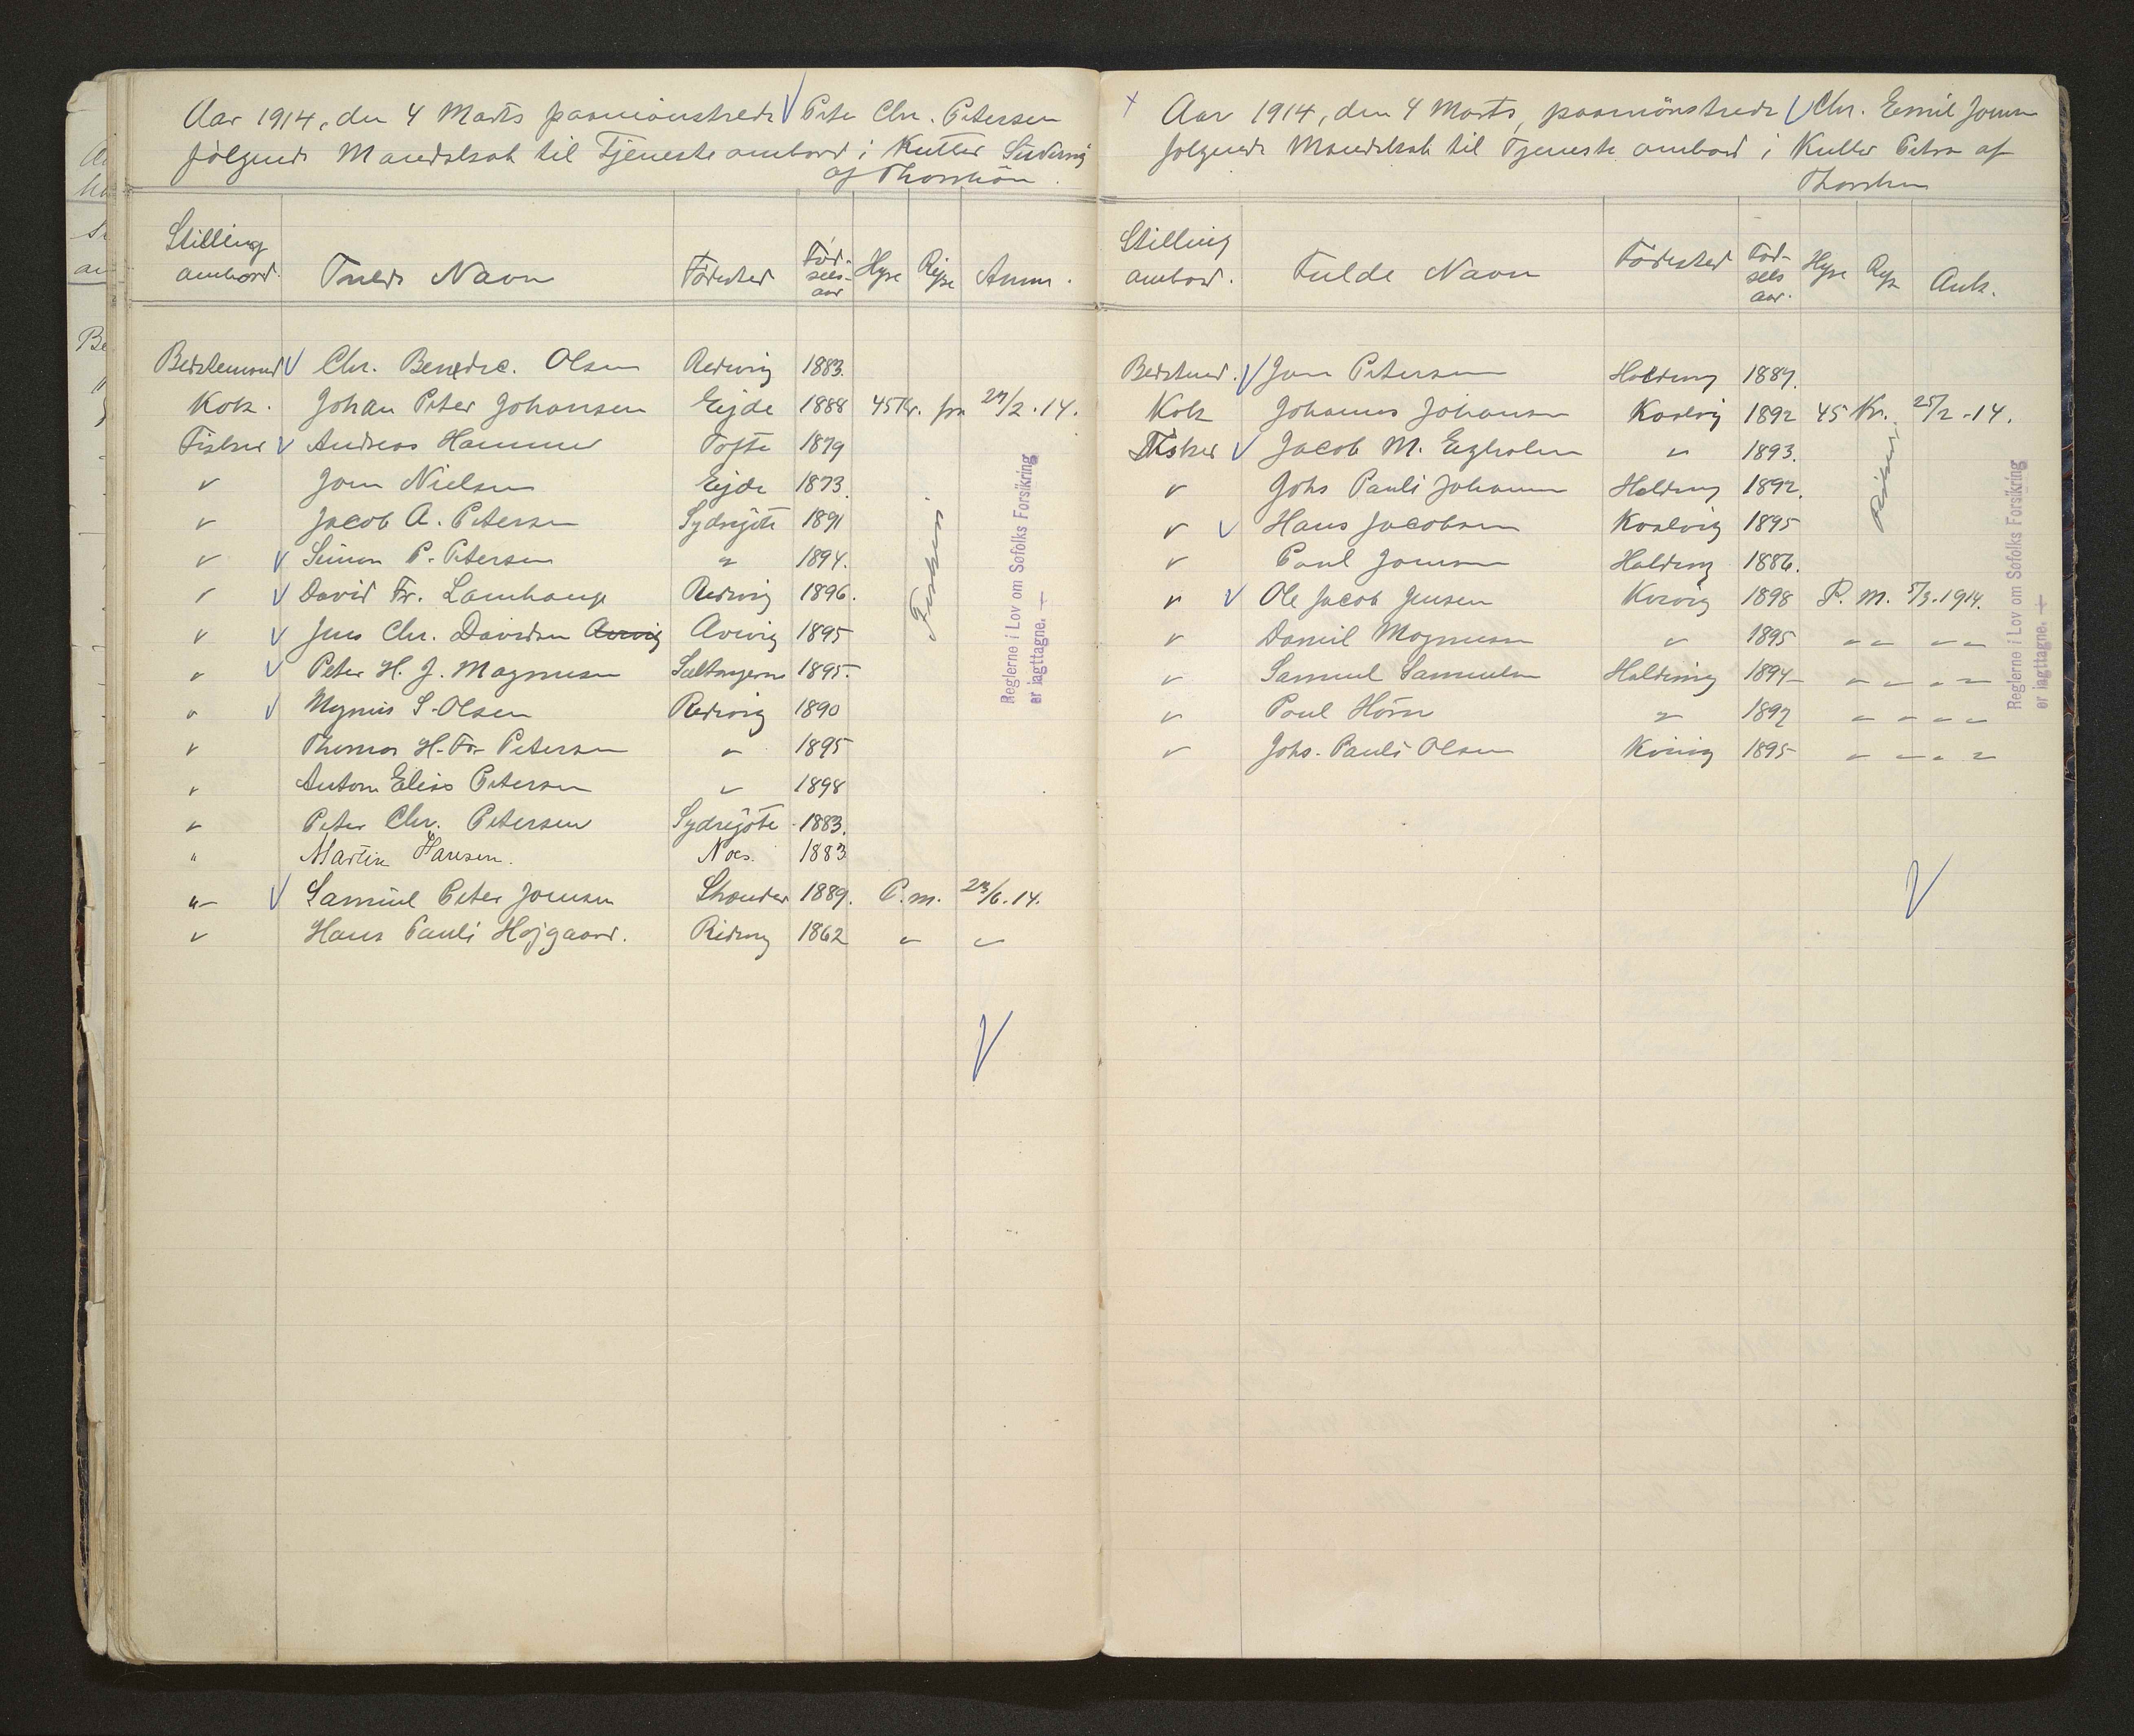 Aar 1914, den 4 Marts paamönstrede V Peter Chr. Petersen
følgende Mandskab til Tjeneste ombord i Kutter
af Thorshavn.
Stilling
ombord.
Fulde Navn
Födested
Föd-
sels-
aar
Hyre
Rejse
Anm.
Bedstemand V Chr. Benedic. Olsen Redevig 1883.
Kok. Johan Peter Johansen Eijde 1888 45 Kr. fra 27/2.14.
Fisker V Andreas Hammer Tofte 1879
" Jom Nielsen Eijde 1873.
" Jacob A. Petersen Sydregöte 1891
" V Simon P. Petersen " 1894.
" V David Fr. Lamhauge Redevig 1896.
" V Jens Chr. Davidsen Arevig 1895
" V Peter H. J. Magnusen Saltangerne 1895.
" V Mognus S. Olsen Redevig 1890
" Thomas H. Fr. Petersen " 1895
" Anton Elias Petersen " 1898
" Peter Chr. Petersen Sydregöte 1883.
" Martin Hansen. Noes. 1883
" V Samuel Peter Jomsen 1889. P. m. 23/6.14.
" Hans Pauli Højgaard. Redevig 1862 " "
Fiskeri.
Reglerne i Lov om Søfolks Forsikring
er iagttagne. —
V
+ Aar 1914, den 4 Marts, paamönstrede V Chr. Emil Jomsen
følgende Mandskab til Tjeneste ombord i Kutter Petra af
Thorshavn
Stilling
ombord.
Fulde Navn
Födested
Föd-
sels
aar.
Hyre
Rejse
Ank.
Bedstmd. V Jom Petersen Haldersvig 1889.
Kok Johannes Johansen Koalvig 1892 45 Kr. 25/2-14.
Fisker V Jacob M. Egholm " 1893.
" Johs Pauli Johansen Haldersvig 1892.
" V Hans Jacobsen Koalvig 1895
" Poul Jomsen Haldersvig 1886.
" V Ole Jacob Jensen Kvivig 1898 P. M. 5/3.1914.
" Daniel Magnusen " 1895 " " " "
" Samuel Samuelsen Haldersvig 1894 " " " "
" Poul Hörn " 1892 " " " "
" Johs. Pauli Olsen Kvivig 1895 " " " "
Reglerne i Lov om Søfolks Forsikring
er iagttagne. —
V